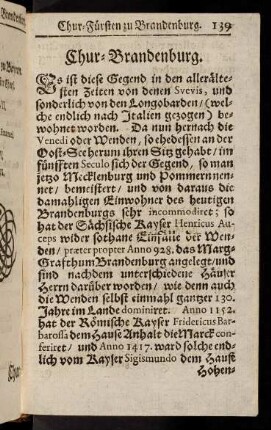 Chur-Fürsten zu Brandenburg. 139
Chur-Brandenburg.
Es ist diese Gegend in den allerälte-
sten Zeiten von denen Svevis, und
sonderlich von den Longobarden / (wel-
che endlich nach Italien gezogen) be-
wohnet worden. Da nun hernach die
Venedi oder Wenden, so ehedessen an der
Oost-See herum ihren Sitz gehabt / im
fünfften Seculo sich der Gegend, so man
jetzo Mecklenburg und Pommern nen-
net / bemeistert / und von daraus die
damahligen Einwohner des heutigen
Brandenburgs sehr incommodiret; so
hat der Sächsische Kayser Henricus Au-
ceps wider sothane Einfälle der Wen-
den / præter propter Anno 928. das Marg-
Grafthum Brandenburg angelegt / und
sind nachdem unterschiedene Häuser
Herrn darüber worden / wie denn auch
die Wenden selbst einmahl gantzer 130.
Jahre im Lande dominiret. Anno 1152.
hat der Römische Kayser Fridericus Bar-
barossa dem Hause Anhalt die Marck con-
feriret / und Anno 1417. ward solche end-
lich vom Kayser Sigismundo dem Hause
Hohen-